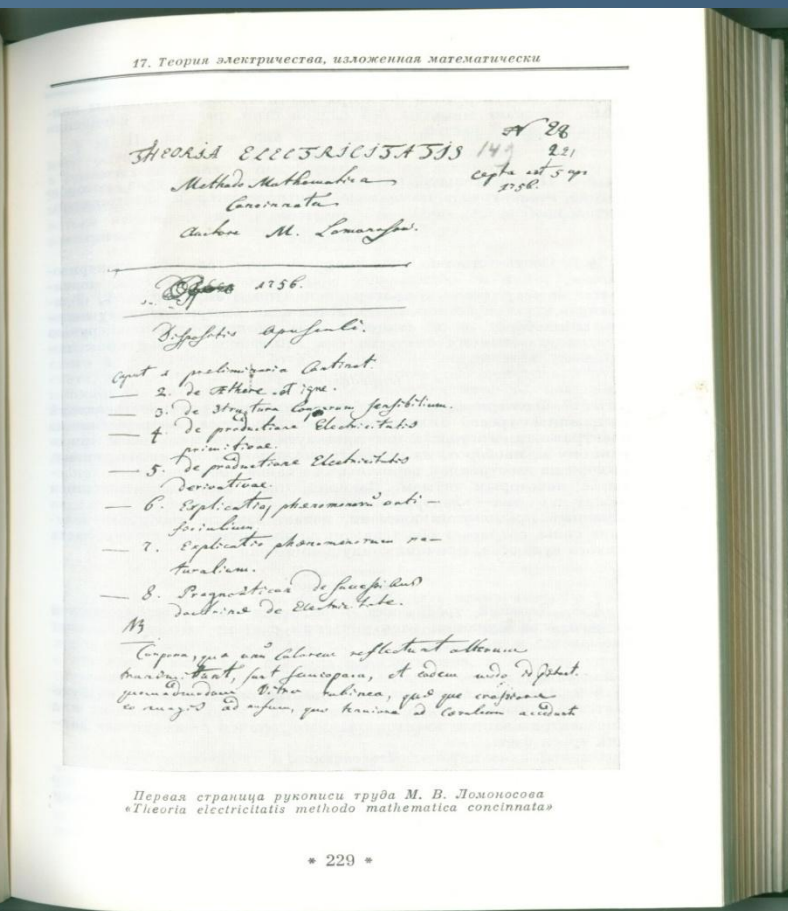 17. Теория электричества, изложенная математически
№ 28
THEORIA ELECTRICITATIS 149 221
Methodo Mathematica cepta est 5 apr
Concinnata 1756.
Auctore M. Lomonosow.
1756.
Dispositio opusculi.
Caput 1 preliminaria Continet.
— 2. de Æthere et igne.
— 3. de Structura Corporum sensibilium.
— 4. de productione Electricitatis
primitivae.
— 5. de productione Electricitatis
derivativae.
— 6. Explicatio phænomenorū arti-
ficialium.
— 7. Explicatio phænomenorum na-
turalium.
— 8. Prognosticon de successibus
doctrinæ de Electricitate.
NB
Corpora, quæ unū Colorem reflectunt alterum
transmittunt, sunt et eodem modo
quemadmodum Vitra rubinea, quæ quo crassiora
eo magis ad, quo teniora ad accedunt
Первая страница рукописи труда М. В. Ломоносова
«Theoria electricitatis methodo mathematica concinnata»
* 229 *